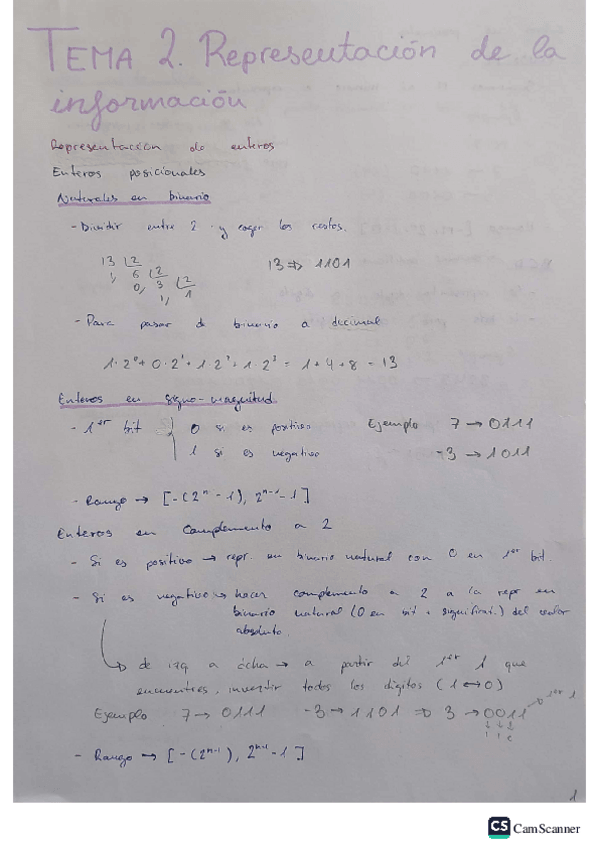 TEMA 2. Representación de la
información
Representación de enteros
Enteros posicionales
Naturales en binario
- Dividir entre 2 y coger los restos.
13 |2
1, 6 |2
0, 3 |2
1, 1
13 ⇒ 1101
- Para pasar de binario a decimal
1·2⁰ + 0·2¹ + 1·2² + 1·2³ = 1 + 4 + 8 = 13
Enteros en signo-magnitud
- 1er bit 0 si es positivo
1 si es negativo
Ejemplo 7 → 0111
-3 → 1011
- Rango → [-(2ⁿ - 1), 2ⁿ⁻¹ - 1]
Enteros en Complemento a 2
- Si es positivo → repr. en binario natural con 0 en 1er bit.
- Si es negativo → hacer complemento a 2 a la repr en
binario natural (0 en bit + significat.) del valor
absoluto.
de izq a dcha → a partir del 1er 1 que
encuentres, invertir todos los dígitos (1 ↔ 0)
Ejemplo 7 → 0111 -3 → 1101 ⇒ 3 → 0011 → 1er 1
- Rango → [-(2ⁿ⁻¹), 2ⁿ⁻¹ - 1]
1
CS CamScanner